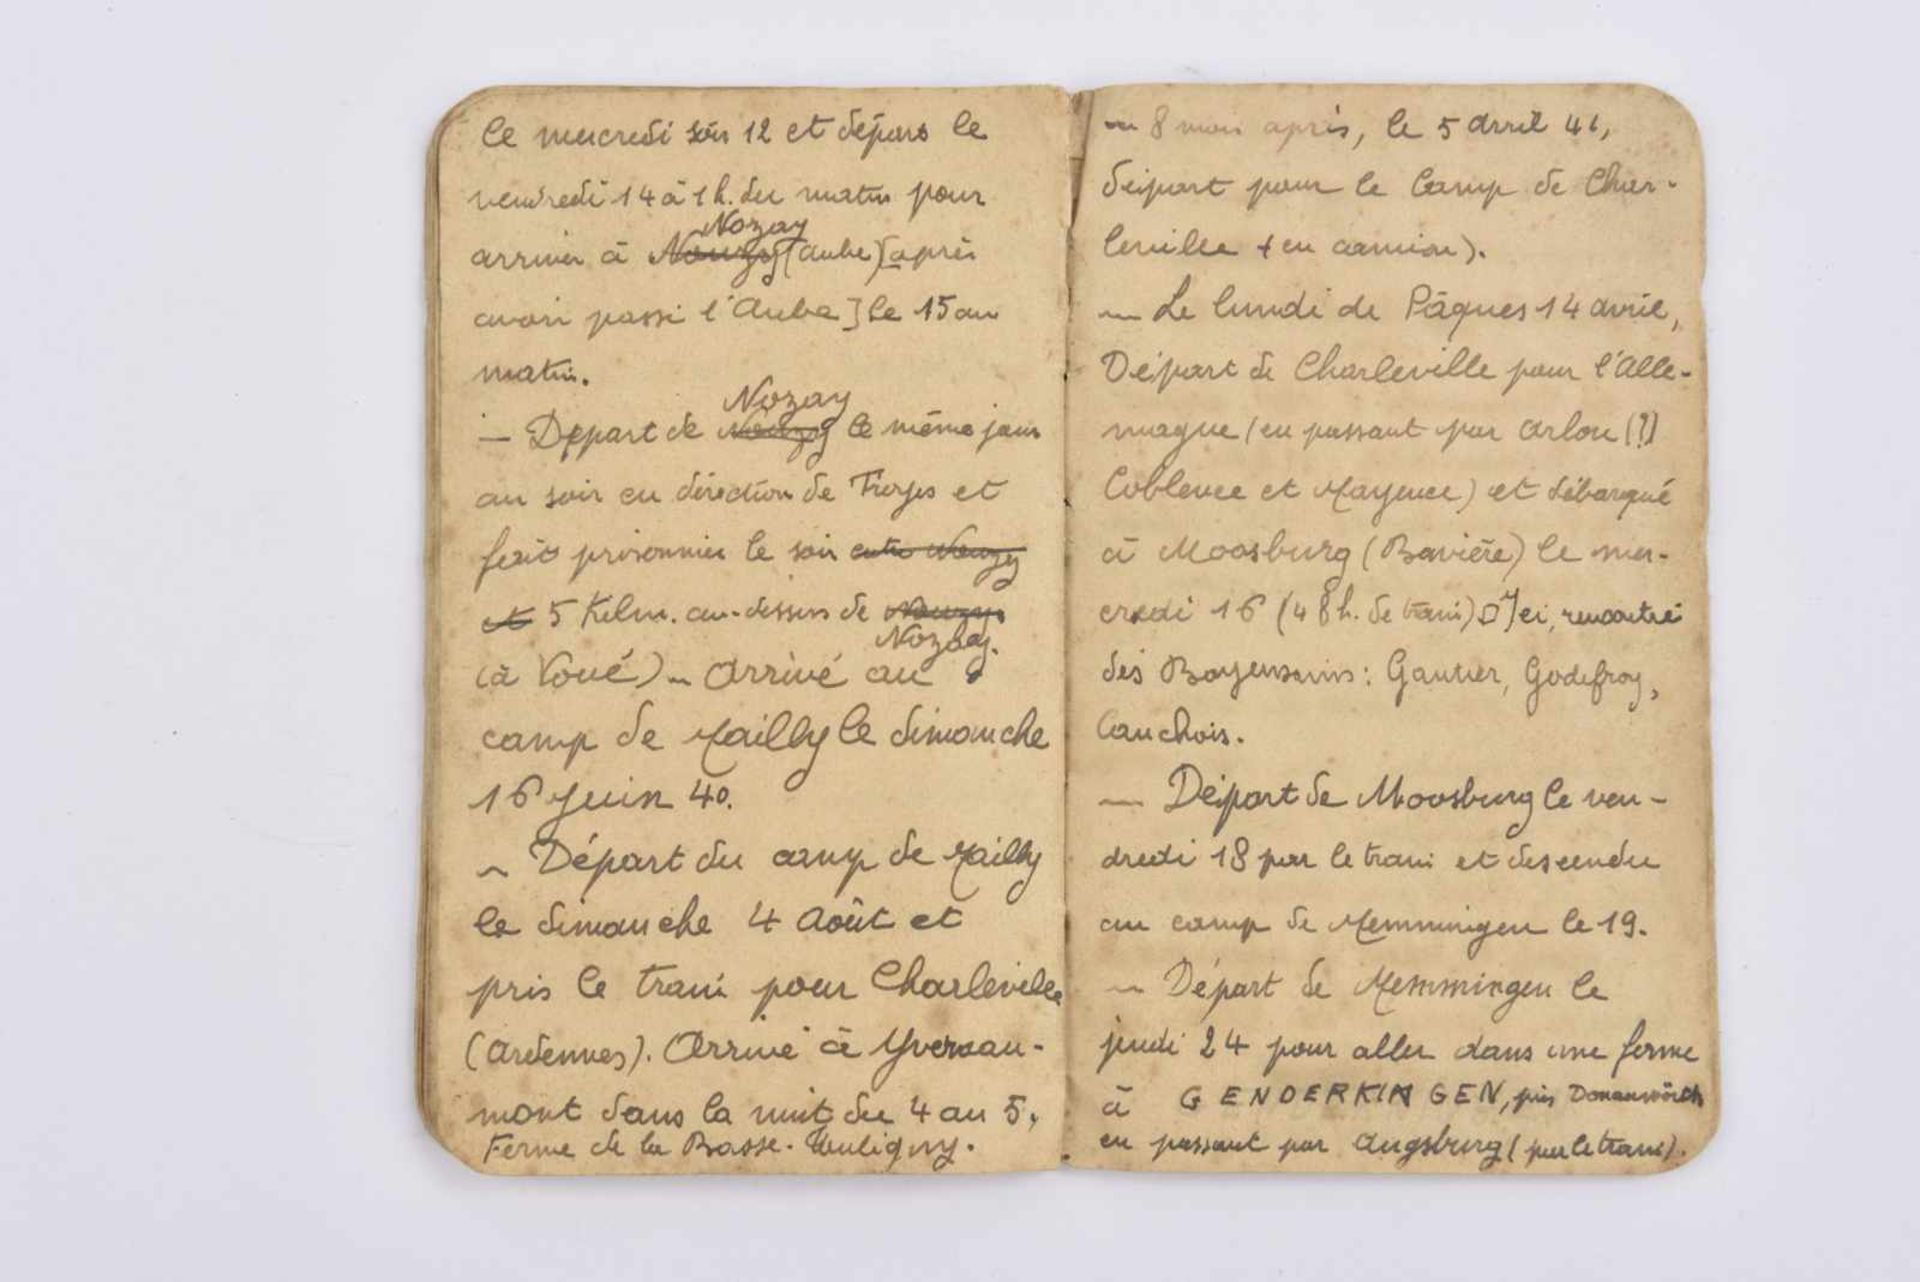 le mercredi soir 12 et départ le
vendredi 14 à 1 h. du matin pour
Nozay
arriver à Nouzy (Aube) [après
avoir passé l'Aube] le 15 au
matin.
Nozay
— Départ de Nouzy le même jour
au soir en direction de Troyes et
fait prisonnier le soir entre Nouzy
et 5 Kilm. au-dessus de Nouzy.
Nozay.
(à Voué) — Arrivé au
camp de Mailly le dimanche
16 Juin 40.
— Départ du camp de Mailly
le dimanche 4 Août et
pris le train pour Charleville
(Ardennes). Arrivé à Yvernau-
mont dans la nuit du 4 au 5,
Ferme de la Basse-Touligny.
— 8 mois après, le 5 avril 41,
départ pour le camp de Char-
leville (en camion).
— Le lundi de Pâques 14 avril,
Départ de Charleville pour l'Alle-
magne (en passant par Arlon (?)
Coblence et Mayence) et débarqué
à Moosburg (Bavière) le mer-
credi 16 (48 h. de train). Ici, rencontré
des Bayeusains : Gautier, Godefroy,
Cauchois.
— Départ de Moosburg le ven-
dredi 18 par le train et descendu
au camp de Memmingen le 19.
— Départ de Memmingen le
jeudi 24 pour aller dans une ferme
à GENDERKINGEN, près Donauwörth
en passant par Augsburg (par le train).